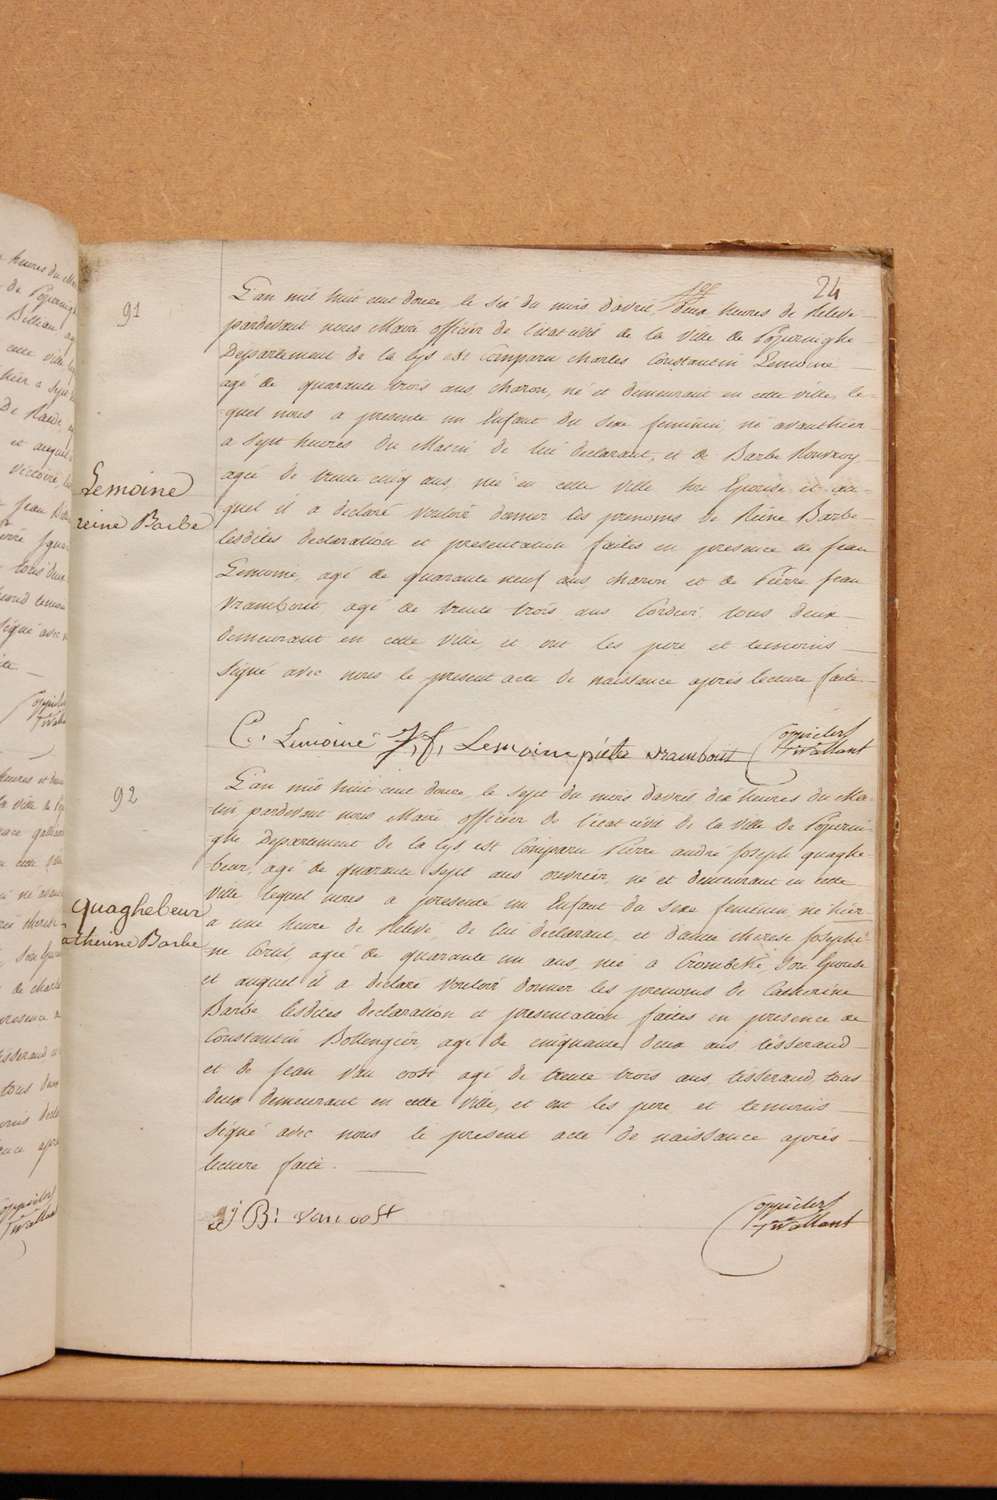 24
91
L'an mil huit cent douze, le six du mois d'avril, deux heures de Relevé
pardevant nous Maire officier de l'état civil de la ville de Poperinghe
Departement de la Lys est Comparu Charles Constantin Lemoine
agé de quarante trois ans charon, né et demeurant en cette ville, le-
quel nous a presenté un Enfant du sexe feminin né avanthier
a sept heures du Matin de lui declarant, et de Barbe
agée de trente cinq ans née en cette ville son Epouse et au-
quel il a declaré vouloir donner les prenoms de Reine Barbe
Lemoine
reine Barbe
lesdites declaration et presentation faites en presence de Jean
Lemoine, agé de quarante neuf ans charon et de Pierre Jean
Vrambout agé de trente trois ans Cordier, tous deux
demeurant en cette ville, et ont les pere et temoins
signé avec nous le present acte de naissance apres lecture faite
C. Lemoine J, f, Lemoine pieter vrambout
92
L'an mil huit cent douze, le sept du mois d'avril dix heures du Ma-
tin pardevant nous Maire officier de l'etat civil de la ville de Poperin
ghe Departement de la Lys est Comparu Pierre andré Joseph quaghe-
beur, agé de quarante sept ans ouvrier, né et demeurant en cette
ville lequel nous a presenté un Enfant du sexe feminin né hier
quaghebeur
atherine Barbe
a une heure de Relevé, de lui declarant, et d'anne therese Josephi-
ne agée de quarante un ans, née a Crombeke son Epouse
et auquel il a declaré vouloir donner les prenoms de Catherine
Barbe lesdites declaration et presentation faites en presence de
Constantin Bollengier, agé de cinquante deux ans tisserand
et de Jean van oost agé de trente trois ans tisserand, tous
deux demeurant en cette ville, et ont les pere et temoins
signé avec nous le present acte de naissance après
lecture faite.
B: van oost